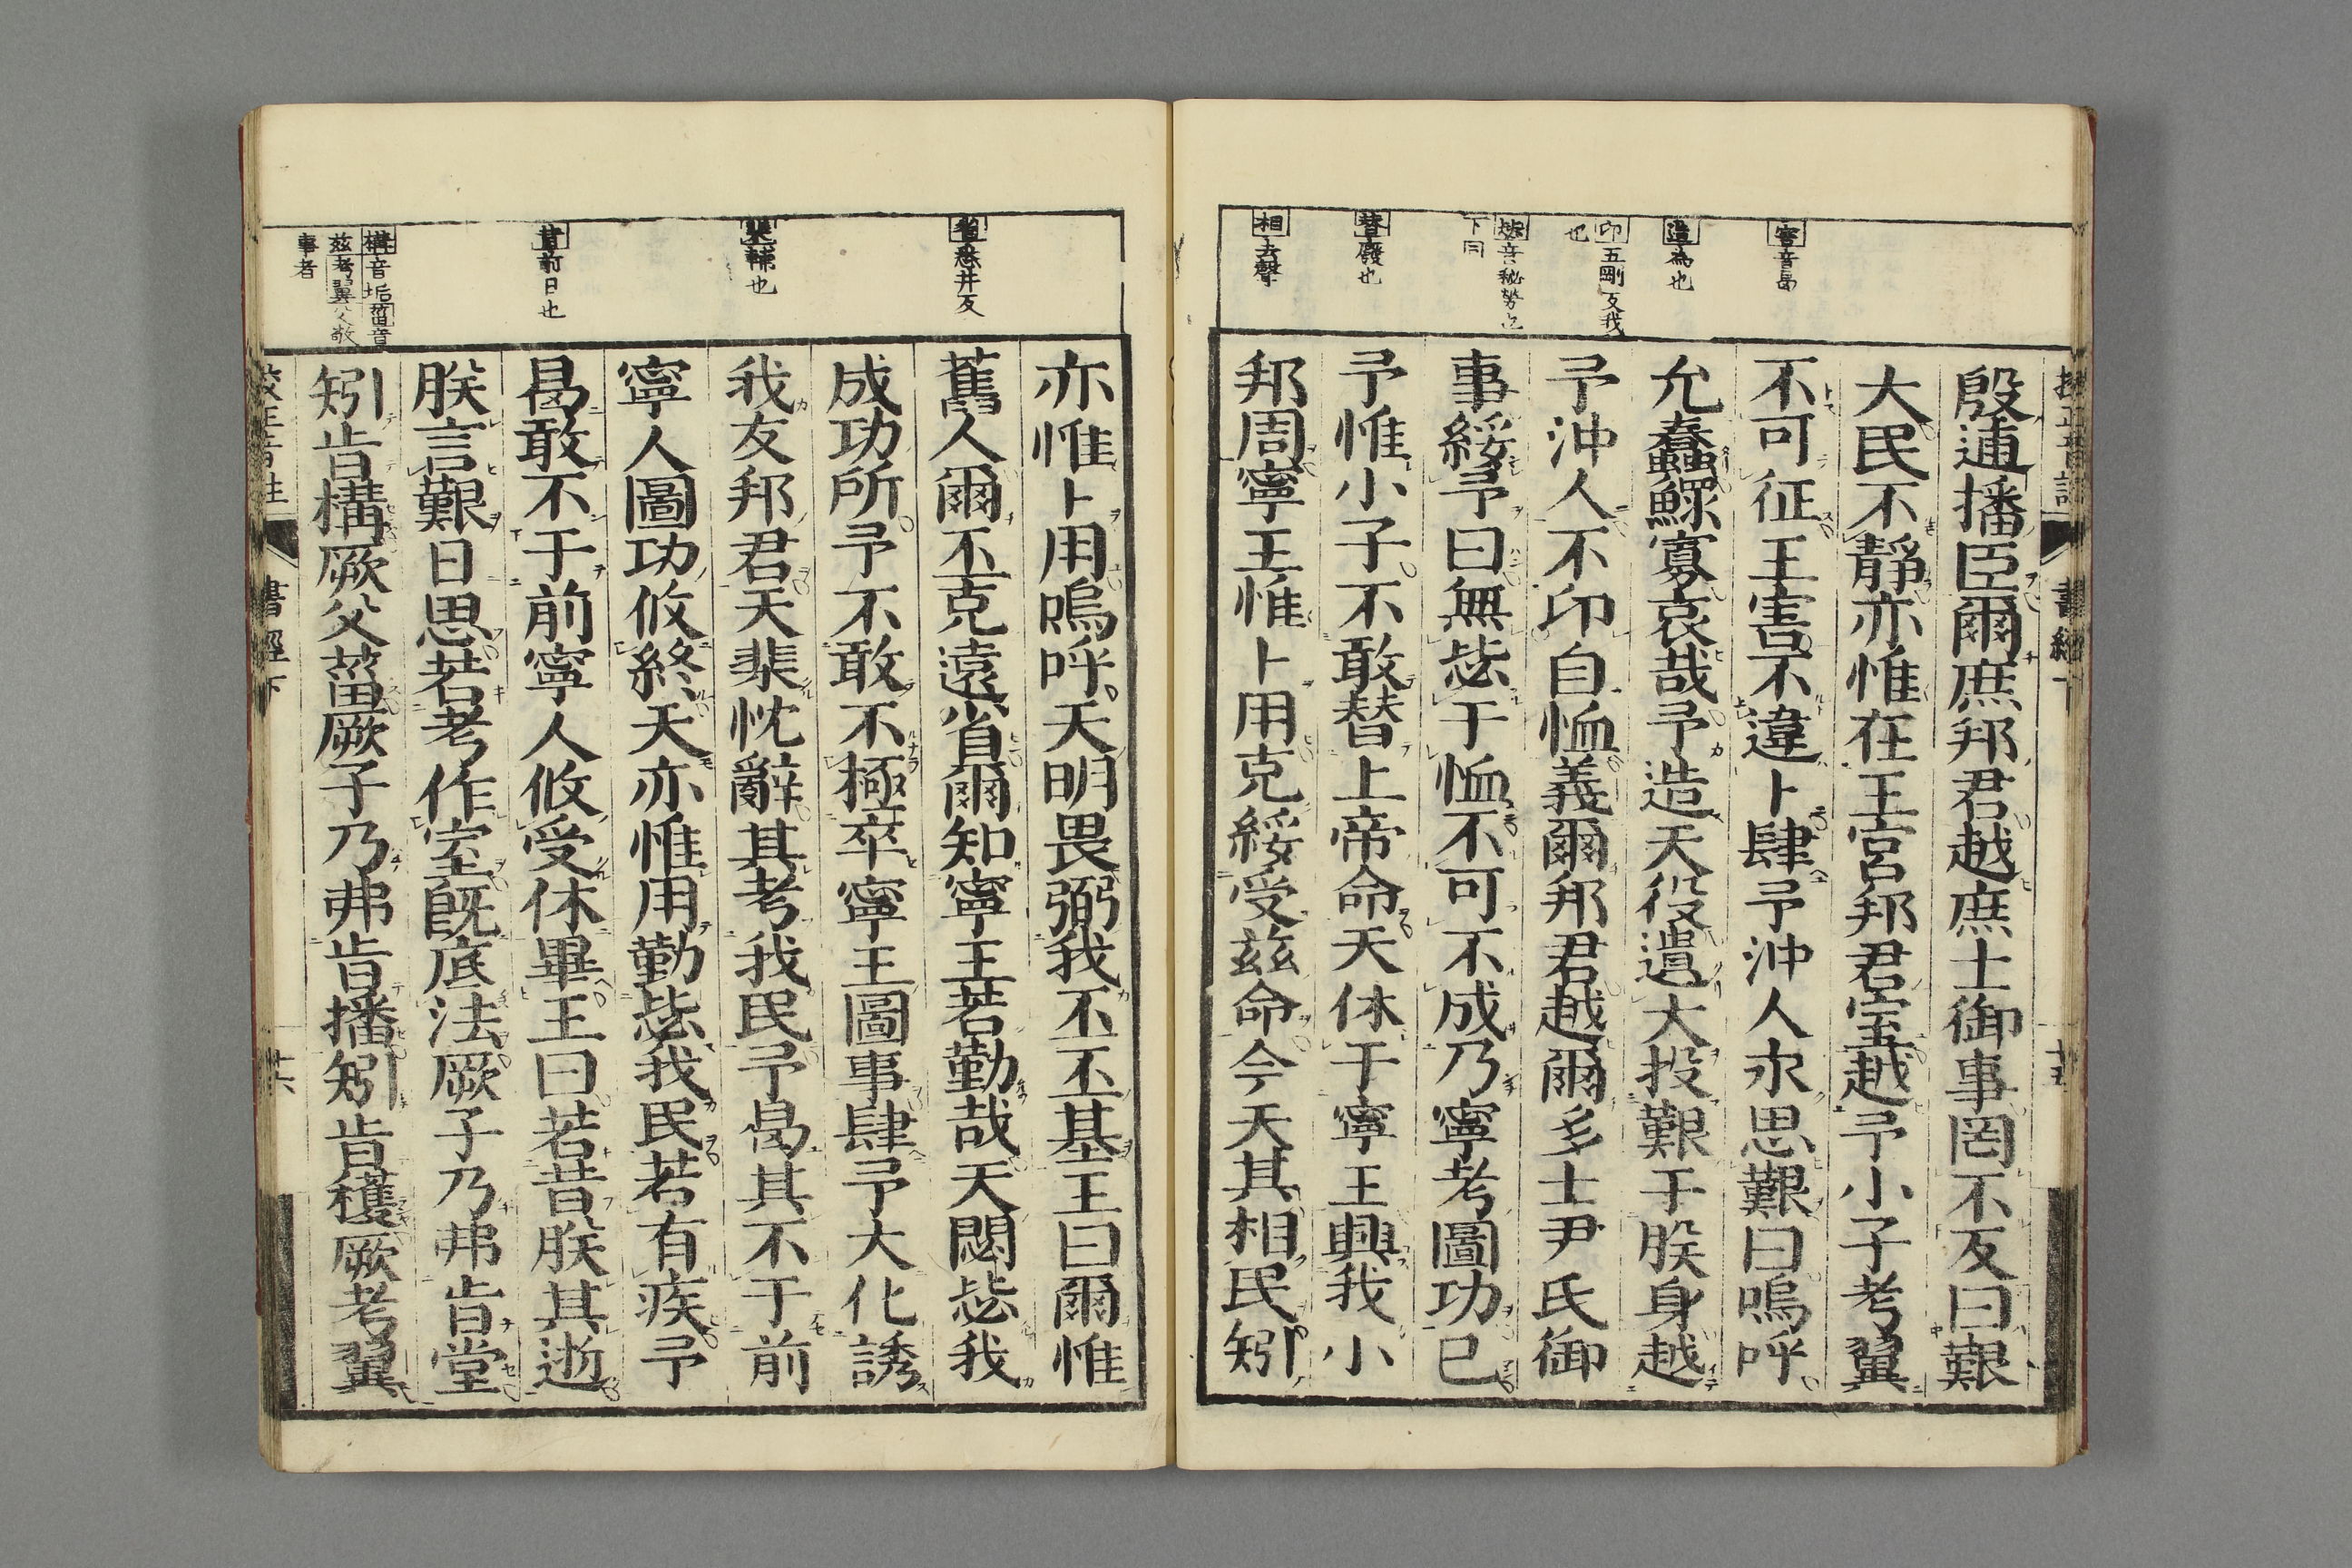 殷逋播臣爾庶邦君越庶士御事罔不反曰艱
大民不靜亦惟在王宮邦君室越予小子考翼
不可征王害不違卜肆予沖人永思艱曰嗚呼
允蠢鰥寡哀哉予造天役遺大投艱于朕身越
予沖人不卬自恤義爾邦君越爾多士尹氏御
事綏予曰無毖于恤不可不成乃寧考圖功已
予惟小子不敢替上帝命天休于寧王興我小
邦周寧王惟卜用克綏受茲命今天其相民矧
害音曷
造為也
卬五剛反我
也
毖音秘勞也
下同
替廢也
相去聲
書經下
亦惟卜用嗚呼天明畏弼我丕丕基王曰爾惟
舊人爾丕克遠省爾知寧王若勤哉天閟毖我
成功所予不敢不極卒寧王圖事肆予大化誘
我友邦君天棐忱辭其考我民予曷其不于前
寧人圖功攸終天亦惟用勤毖我民若有疾予
曷敢不于前寧人攸受休畢王曰若昔朕其逝
朕言艱日思若考作室既底法厥子乃弗肯堂
矧肯構厥父菑厥子乃弗肯播矧肯穫厥考翼
省悉井反
棐輔也
昔前日也
構音垢菑音
茲考翼父敬
事者
書經下